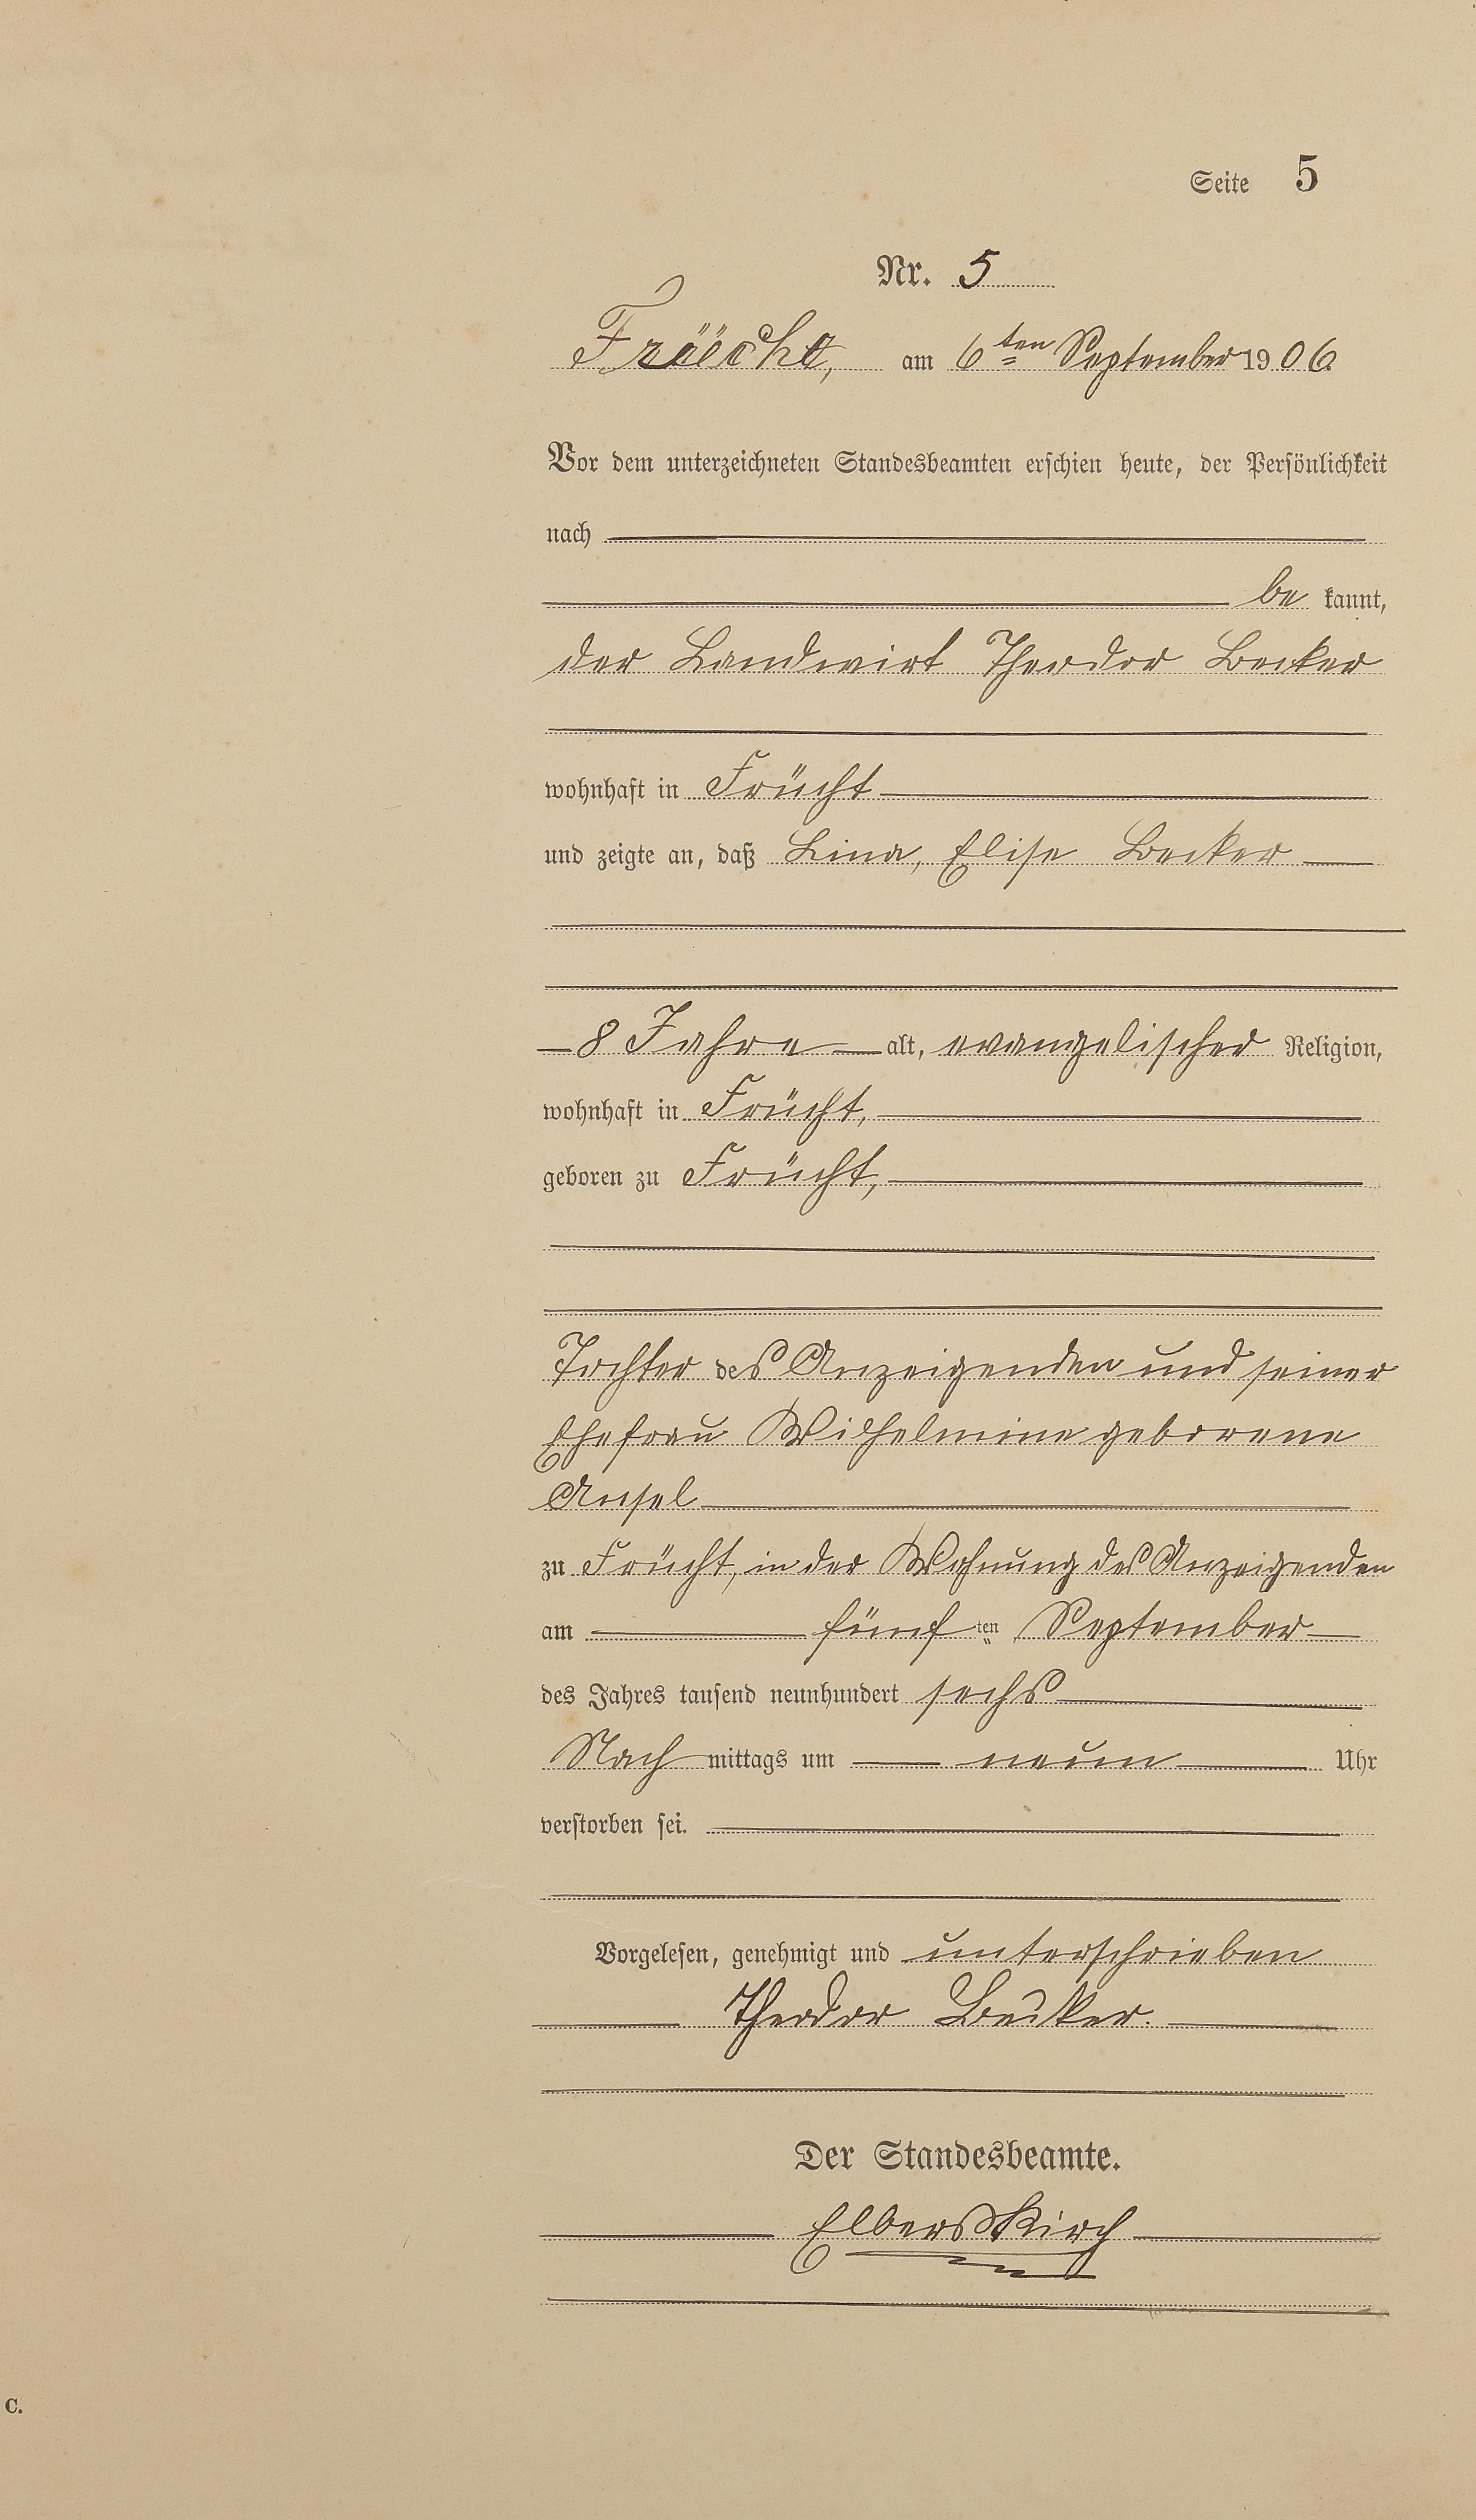 Seite 5
Nr. 5
Frücht, am 6ten September 1906
Vor dem unterzeichneten Standesbeamten erschien heute, der Persönlichkeit
nach
be kannt,
der Landwirt Theodor Becker
wohnhaft in Frücht
und zeigte an, daß Lina, Elise Becker
8 Jahre alt, evangelischer Religion,
wohnhaft in Frücht,
geboren zu Frücht,
Tochter des Anzeigenden und seiner
Ehefrau Wilhelmine geborene
Ansel
zu Frücht, in der Wohnung des Anzeigenden
am fünf ten September
des Jahres tausend neunhundert sechs
Nach mittags um neun Uhr
verstorben sei.
Vorgelesen, genehmigt und unterschrieben
Theodor Becker.
Der Standesbeamte.
Elberskirch
C.